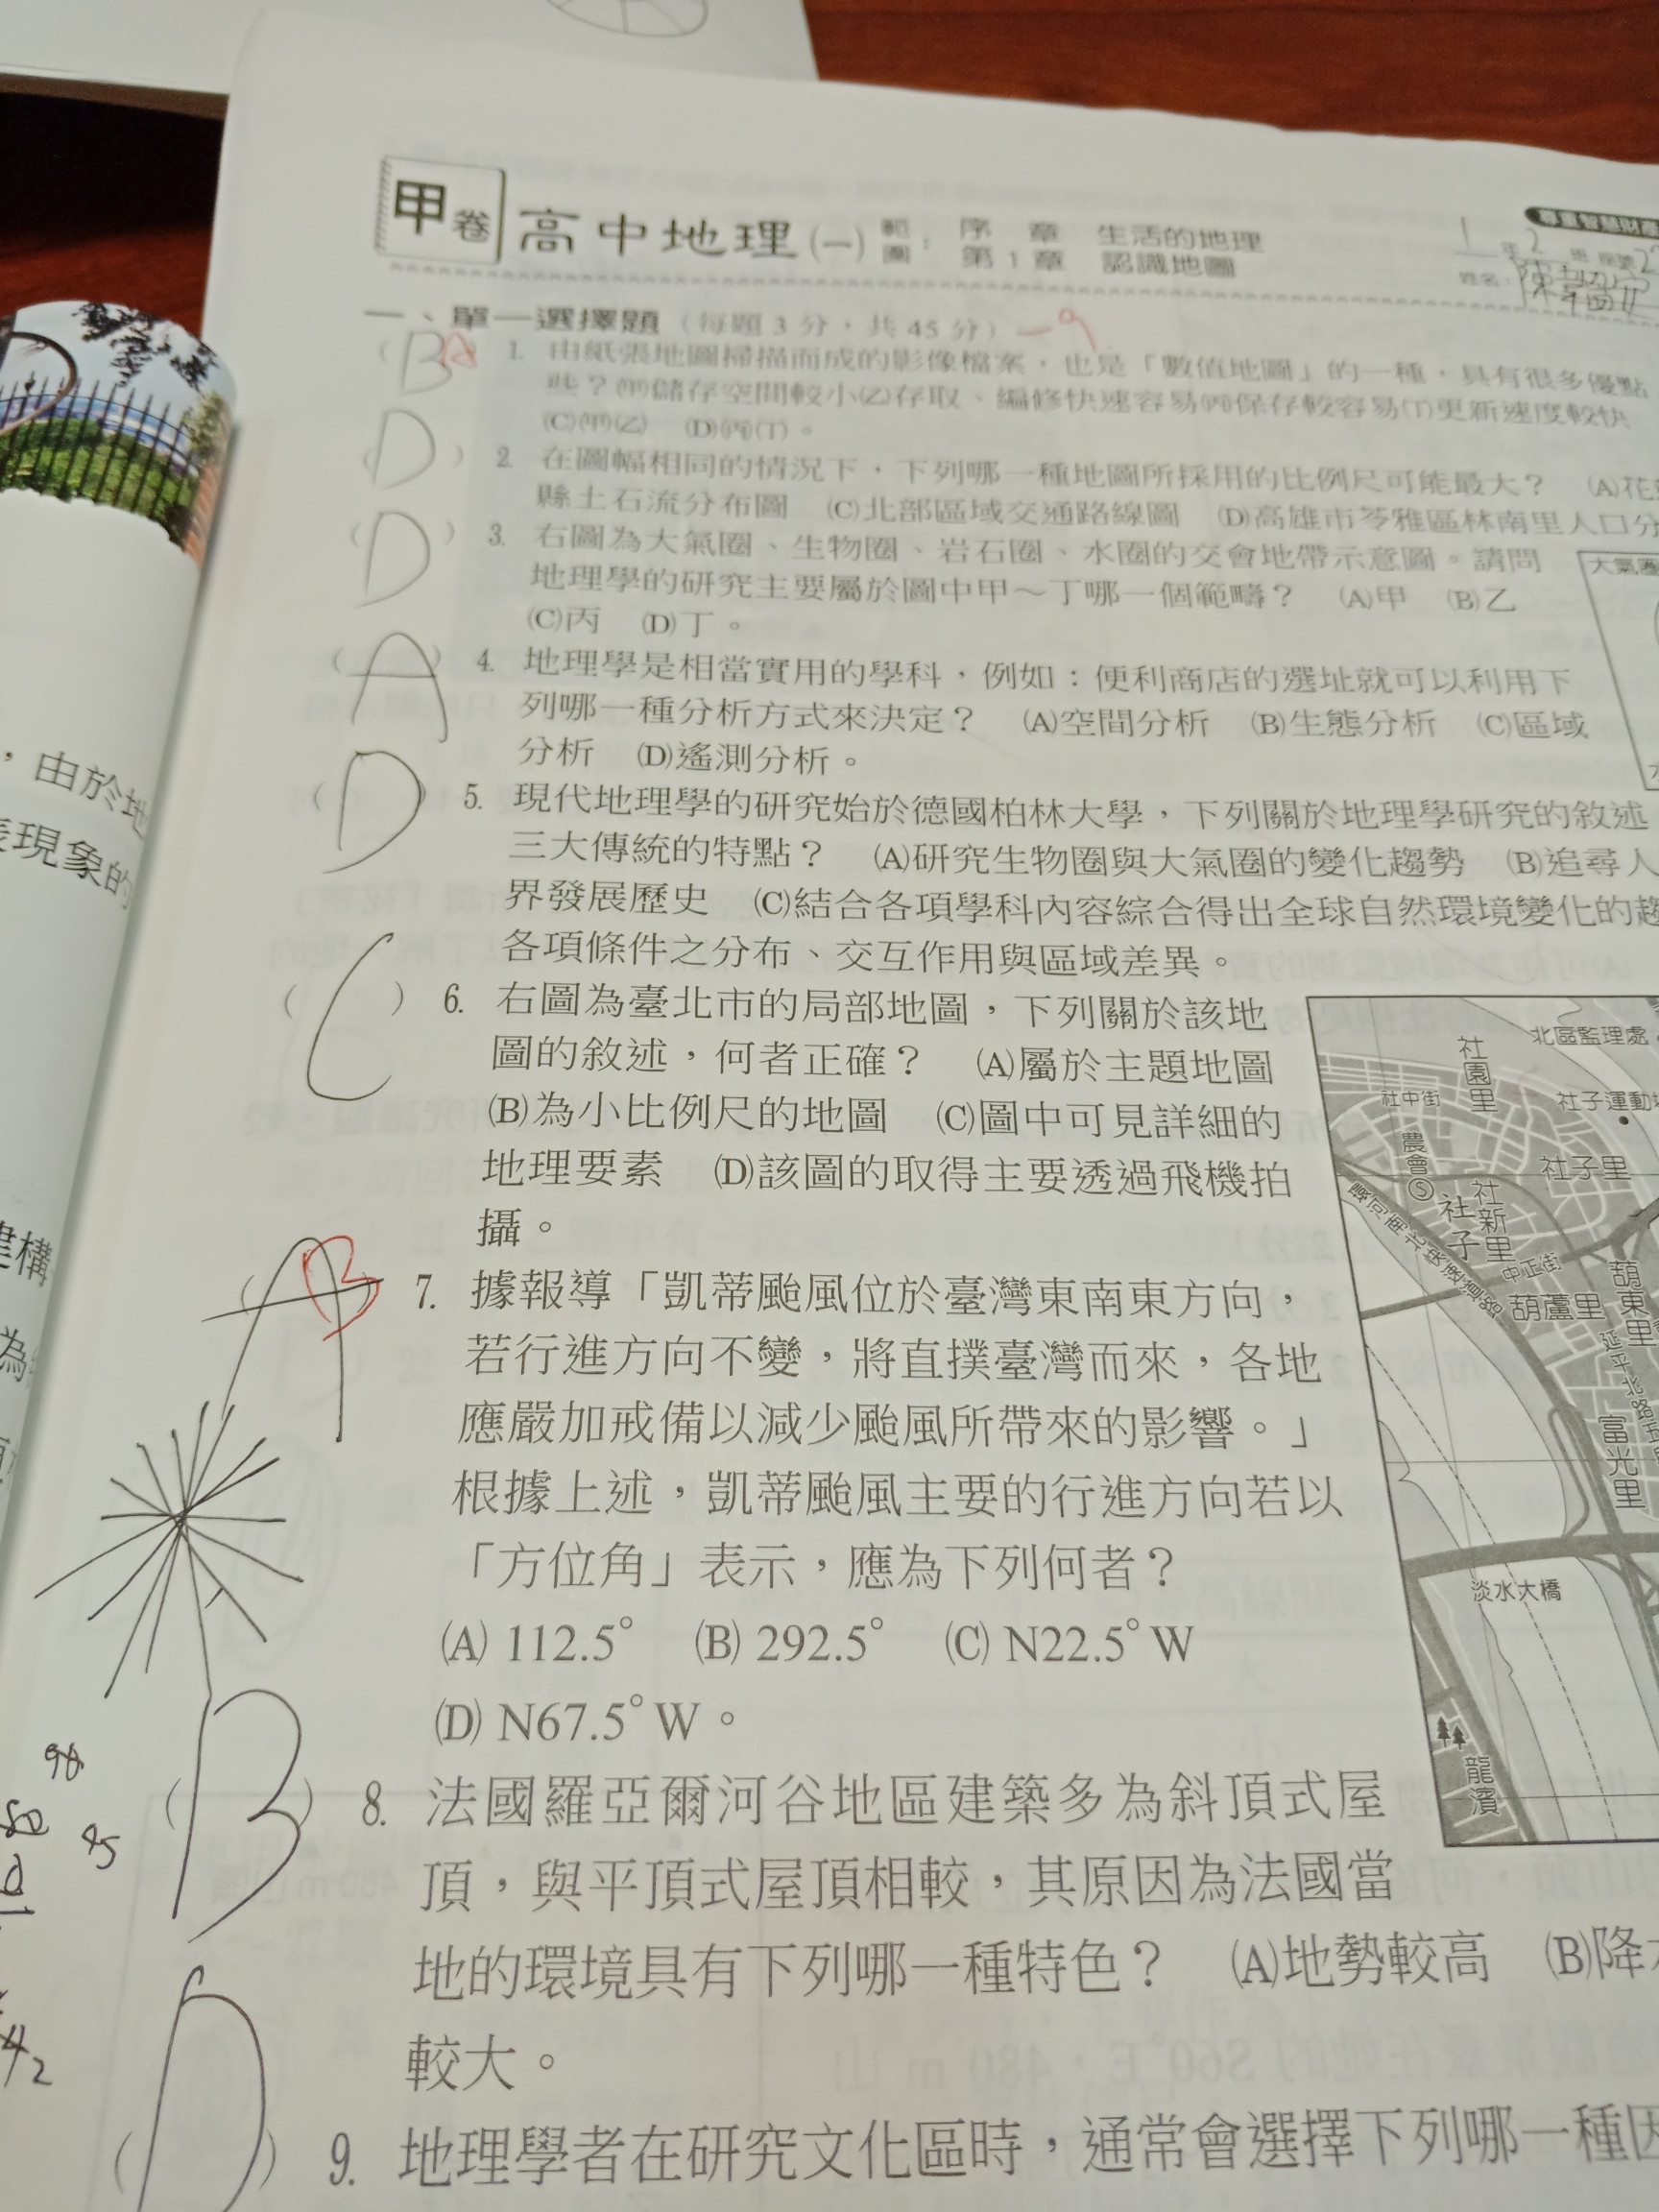 甲卷 高中地理(一) 範圍： 序 章 生活的地理
第1章 認識地圖
1年2班 座號
姓名：
一、單一選擇題（每題3分，共45分）-9
(B) 1. 由紙張地圖掃描而成的影像檔案，也是「數值地圖」的一種，具有很多優點
些？(甲)儲存空間較小(乙)存取、編修快速容易(丙)保存較容易(丁)更新速度較快
(C)(甲)(乙) (D)(丙)(丁)。
(D) 2. 在圖幅相同的情況下，下列哪一種地圖所採用的比例尺可能最大？ (A)花
縣土石流分布圖 (C)北部區域交通路線圖 (D)高雄市苓雅區林南里人口分
(D) 3. 右圖為大氣圈、生物圈、岩石圈、水圈的交會地帶示意圖。請問
地理學的研究主要屬於圖中甲～丁哪一個範疇？ (A)甲 (B)乙
(C)丙 (D)丁。
大氣圈
(A) 4. 地理學是相當實用的學科，例如：便利商店的選址就可以利用下
列哪一種分析方式來決定？ (A)空間分析 (B)生態分析 (C)區域
分析 (D)遙測分析。
(D) 5. 現代地理學的研究始於德國柏林大學，下列關於地理學研究的敘述
三大傳統的特點？ (A)研究生物圈與大氣圈的變化趨勢 (B)追尋人
界發展歷史 (C)結合各項學科內容綜合得出全球自然環境變化的趨
各項條件之分布、交互作用與區域差異。
(C) 6. 右圖為臺北市的局部地圖，下列關於該地
圖的敘述，何者正確？ (A)屬於主題地圖
(B)為小比例尺的地圖 (C)圖中可見詳細的
地理要素 (D)該圖的取得主要透過飛機拍
攝。
(A) B 7. 據報導「凱蒂颱風位於臺灣東南東方向，
若行進方向不變，將直撲臺灣而來，各地
應嚴加戒備以減少颱風所帶來的影響。」
根據上述，凱蒂颱風主要的行進方向若以
「方位角」表示，應為下列何者？
(A) 112.5° (B) 292.5° (C) N22.5°W
(D) N67.5°W。
(B) 8. 法國羅亞爾河谷地區建築多為斜頂式屋
頂，與平頂式屋頂相較，其原因為法國當
地的環境具有下列哪一種特色？ (A)地勢較高 (B)降
較大。
(D) 9. 地理學者在研究文化區時，通常會選擇下列哪一種因
北區監理處
社園里
社中街
社子運動
農會
社子里
社新里
社子
環河南北快速道路
中正街
葫蘆里
葫東里
延平北路
富光里
淡水大橋
龍濱
，由於地
表現象的
建構
為